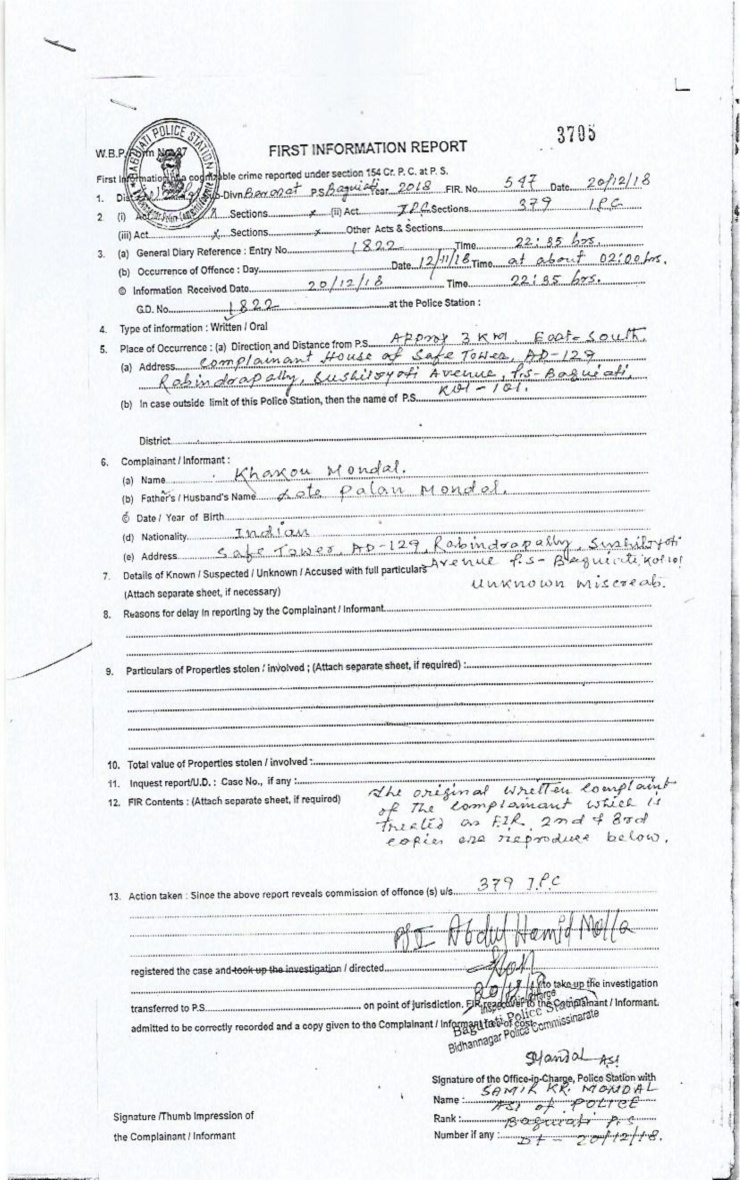 3705
BAGUIATI POLICE STATION
W.B.P. Form No. 27
FIRST INFORMATION REPORT
First Information of a cognizable crime reported under section 154 Cr. P. C. at P. S.
1. Sub-Divn Barasat P.S Baguiati Year 2018 FIR. No. 547 Date 20/12/18
2 (i) Act x Sections x (ii) Act I.P.C Sections 379 I.P.C
(iii) Act x Sections x Other Acts & Sections
3. (a) General Diary Reference : Entry No. 1822 Time 22:35 hrs.
(b) Occurrence of Offence : Day Date 12/11/18 Time at about 02:00 hrs.
© Information Received Date 20/12/18 Time 22:35 hrs.
G.D. No. 1822 at the Police Station :
4. Type of information : Written / Oral
5. Place of Occurrence : (a) Direction and Distance from P.S. Approx 3 KM. East-South.
(a) Address Complainant House of Safe Tower, AD-129
Rabindrapally, Sushiljyoti Avenue, P.s- Baguiati,
Kol-101.
(b) In case outside limit of this Police Station, then the name of P.S.
District
6. Complainant / Informant :
(a) Name Khakon Mondal.
(b) Father's / Husband's Name Late Palan Mondal.
© Date / Year of Birth
(d) Nationality Indian
(e) Address Safe Tower, AD-129, Rabindrapally, Sushiljyoti
7. Details of Known / Suspected / Unknown / Accused with full particulars Avenue P.s- Baguiati, Kol 101
(Attach separate sheet, if necessary) Unknown miscreat.
8. Reasons for delay in reporting by the Complainant / Informant
9. Particulars of Properties stolen / involved ; (Attach separate sheet, if required) :
10. Total value of Properties stolen / involved :
11. Inquest report/U.D. : Case No., if any :
12. FIR Contents : (Attach separate sheet, if required) The original written complaint
of the complainant which is
treated as FIR. 2nd & 3rd
copies are reproduce below.
13. Action taken : Since the above report reveals commission of offence (s) u/s. 379 I.P.C
Abdul Hamid Molla
registered the case and took up the investigation / directed to take up the investigation
20/12/18
transferred to P.S. on point of jurisdiction. FIR read over to the Complainant / Informant.
Inspector-in-Charge
admitted to be correctly recorded and a copy given to the Complainant / Informant free of cost.
Baguiati Police Station
Bidhannagar Police Commissinarate
SMandal ASI
Signature of the Office-in-Charge, Police Station with
Name : SAMIR KR. MONDAL
Rank : ASI of POLICE
Baguiati P.S
Number if any : Dt - 20/12/18.
Signature /Thumb Impression of
the Complainant / Informant